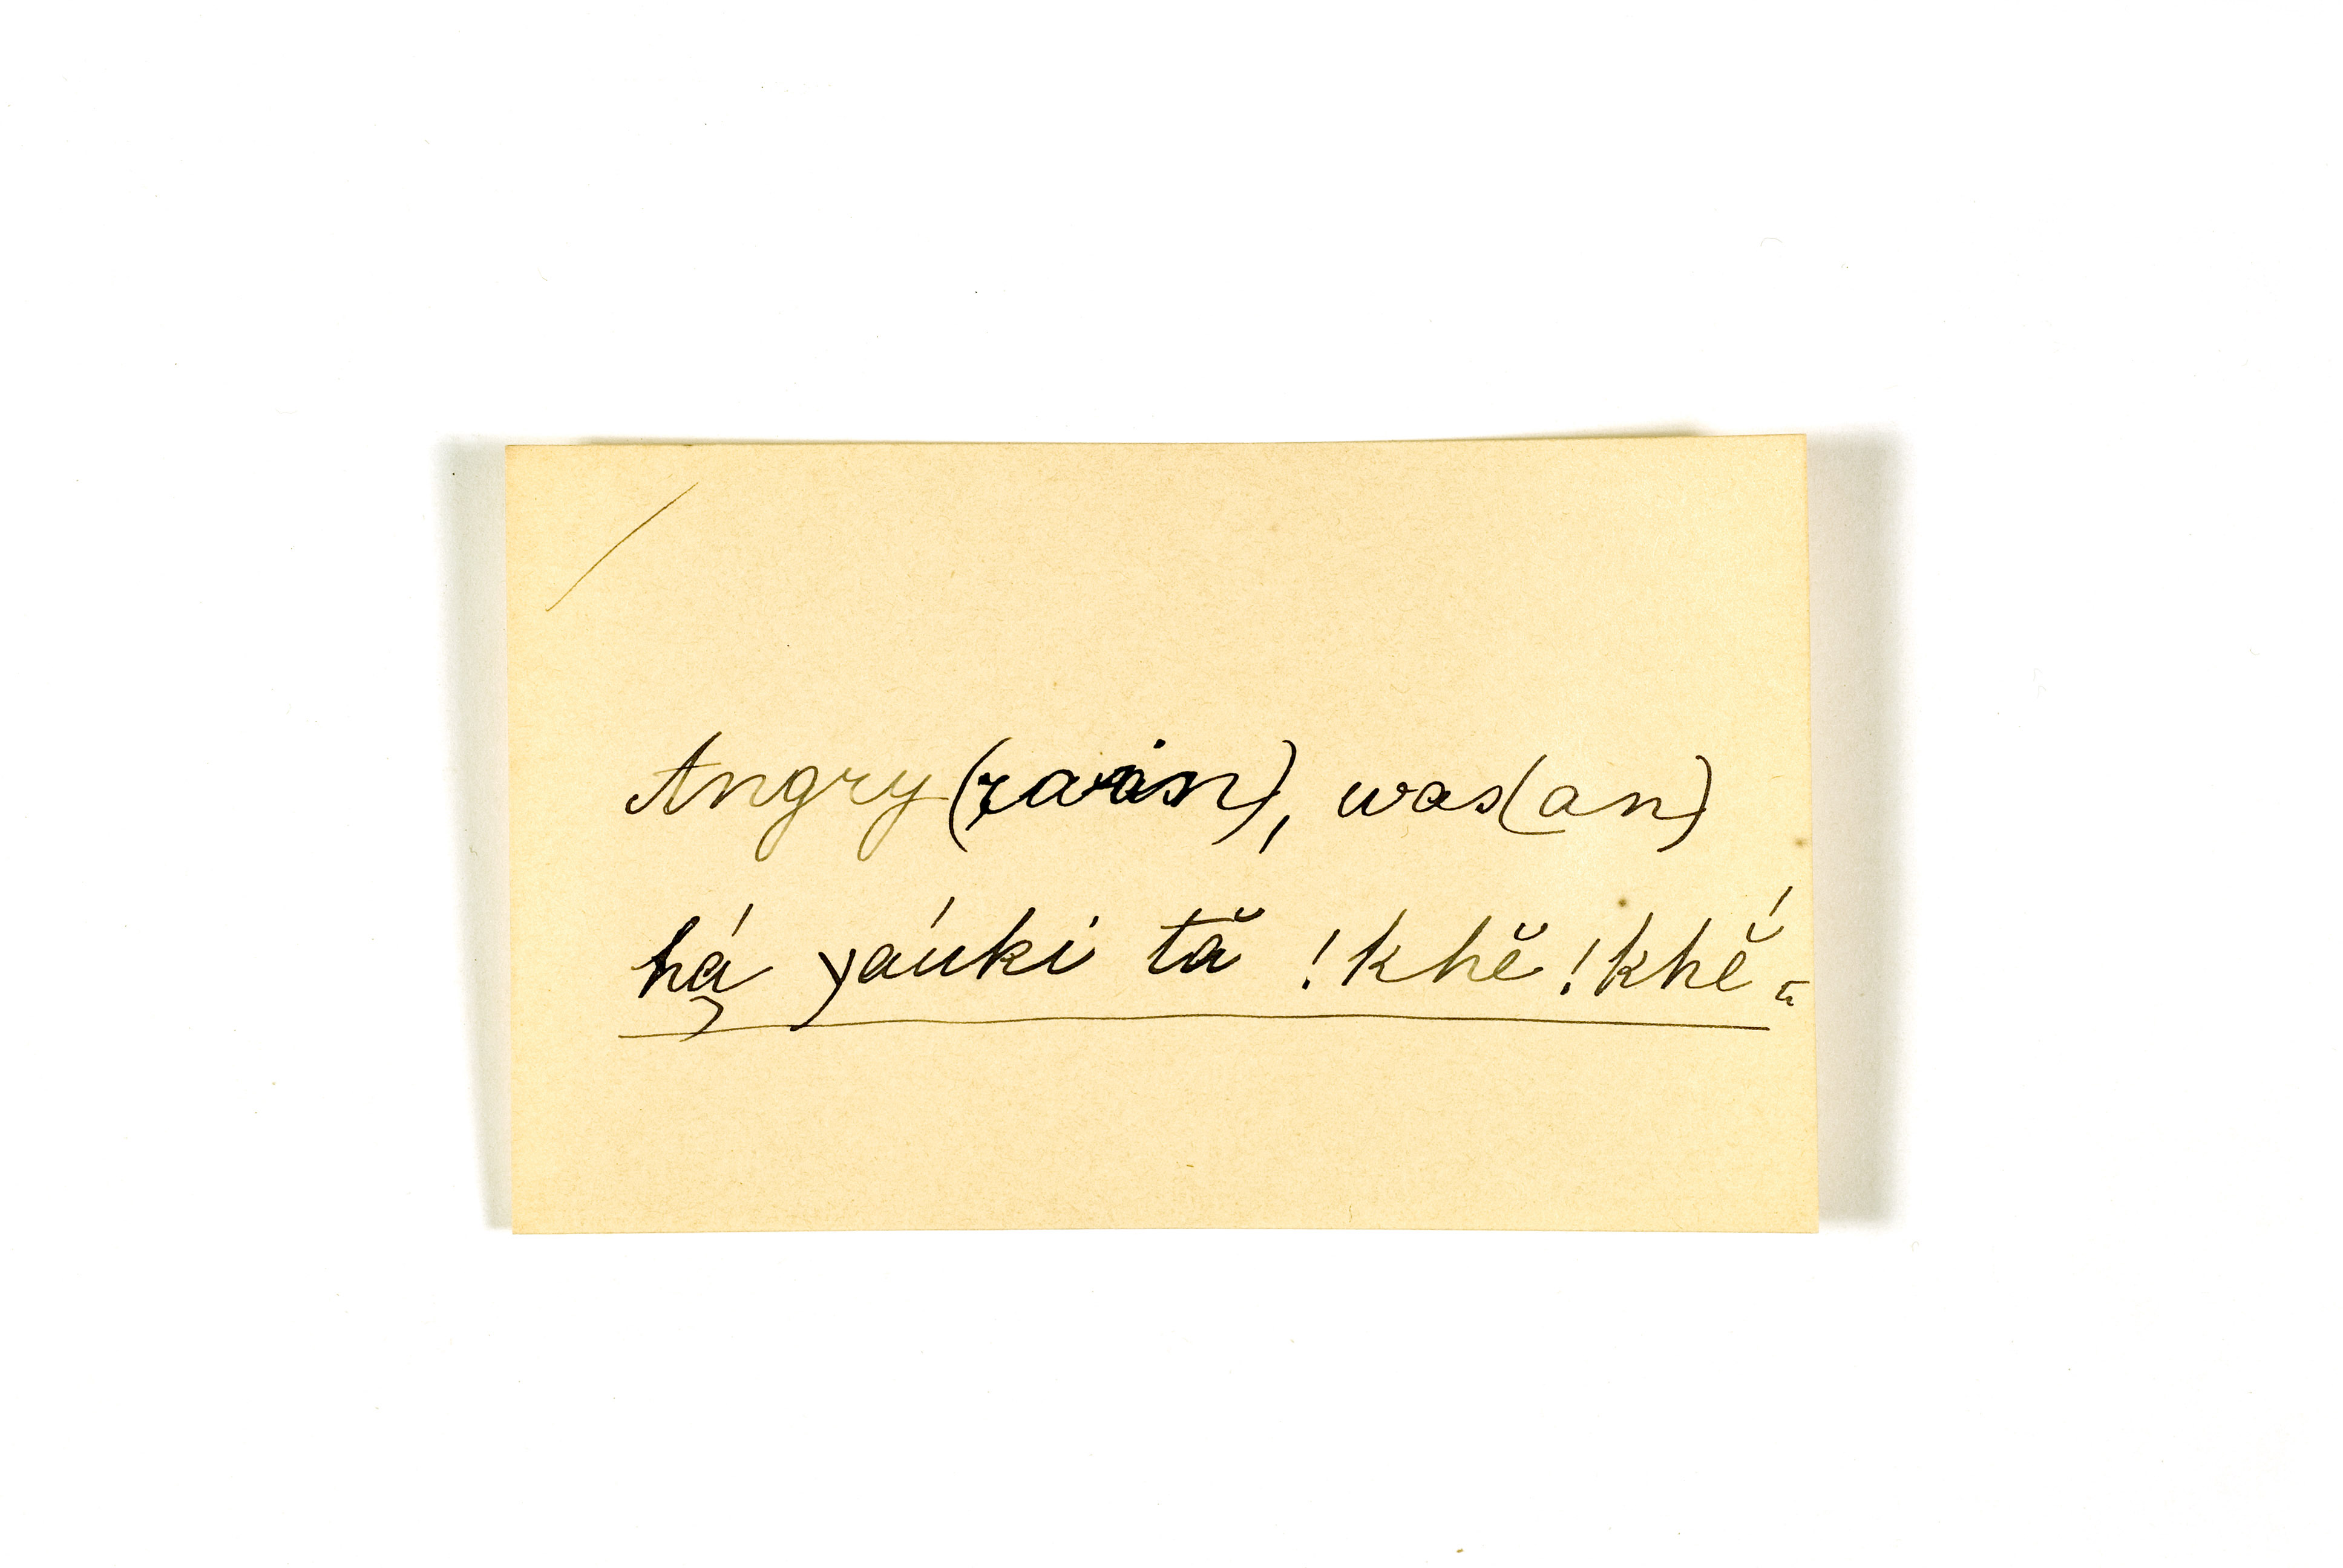 Angry (rain), was (an)
há̰ yáuki tă !khĕ !khĕ́